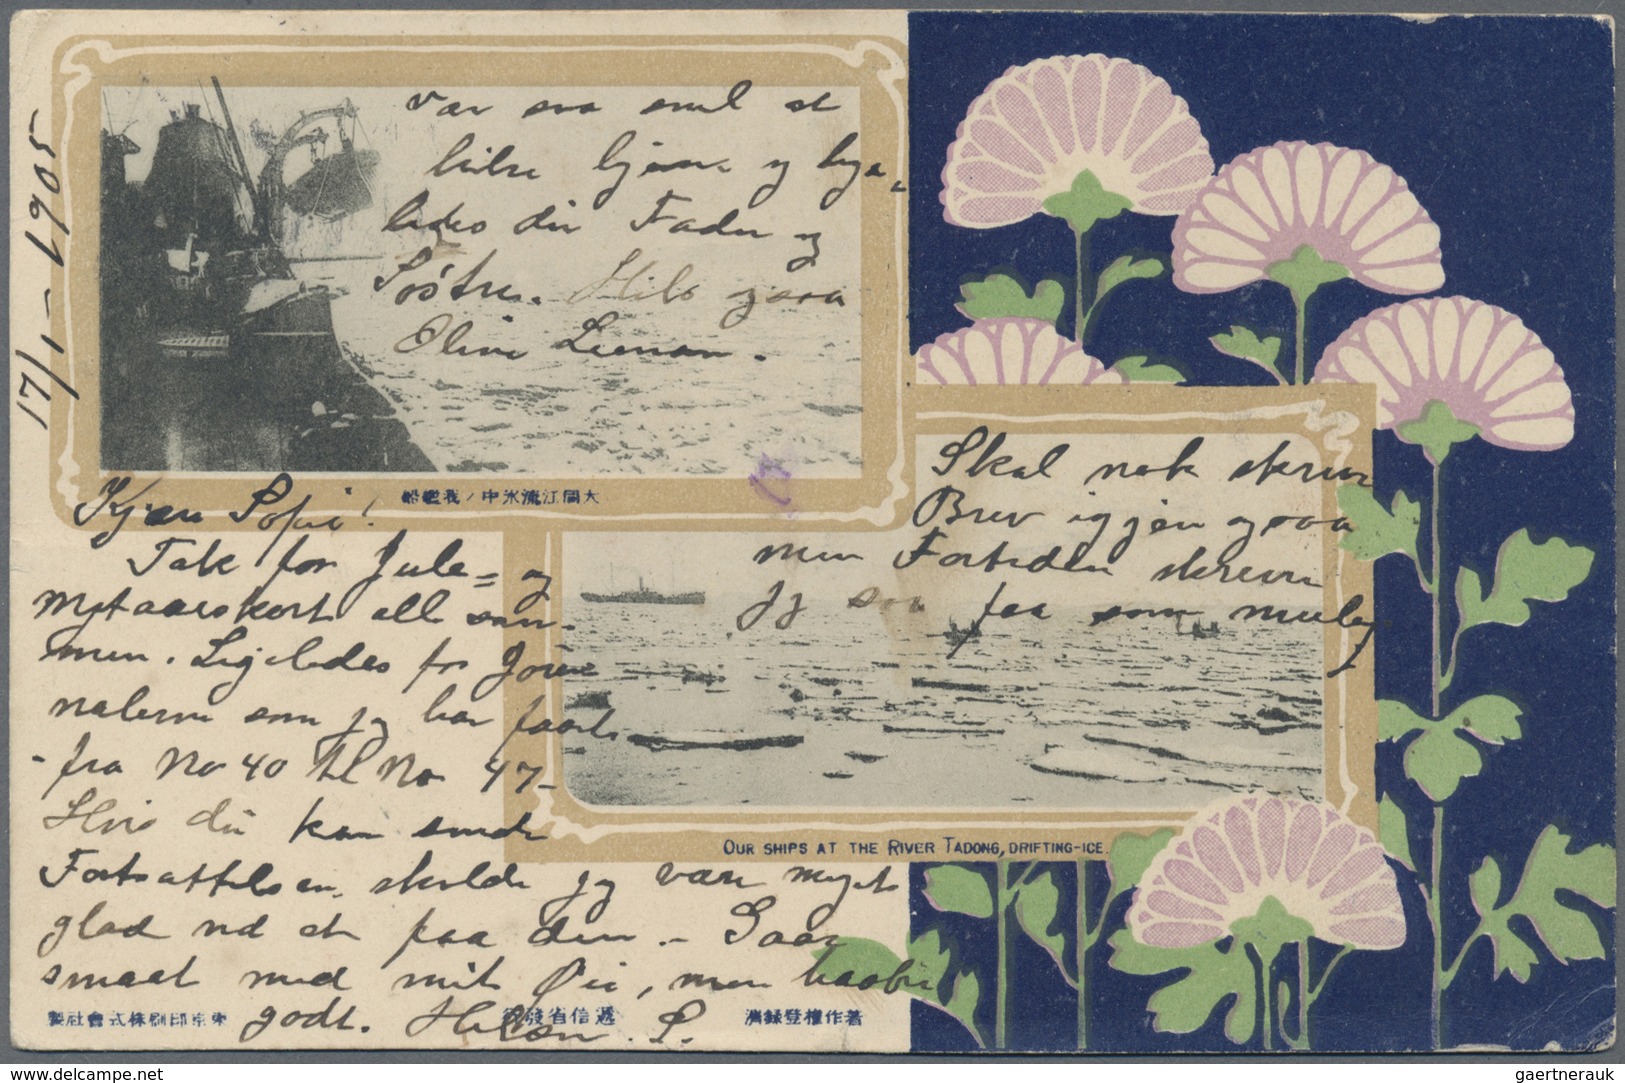 17/1 – 1905
Vær saa snil at
hilse hjem og lige-
ledes din Fader og
Söstre. Hils ogsaa
Oline
大同江流氷中ノ我艦船
Kjære Sofie!
Tak for Jule= og
Nytaarskort all sam-
men. Ligeledes for Jour
nalerne som jeg har faaet
- fra No 40 til No 47-
Hvis du kan sende
Fortsættelsen, skulde jeg være meget
glad ved at faa den. – Gaar
smaat med mit Öie, men haaber
godt. Hilsen. S.
Skal nok skrive
Brev igjen ogsaa
men Fortiden skriver
jeg saa faa som mulig
OUR SHIPS AT THE RIVER TADONG, DRIFTING-ICE.
東京印刷株式會社製
逓信省發行
著作權登録濟
delcampe.net
gaertnerauk